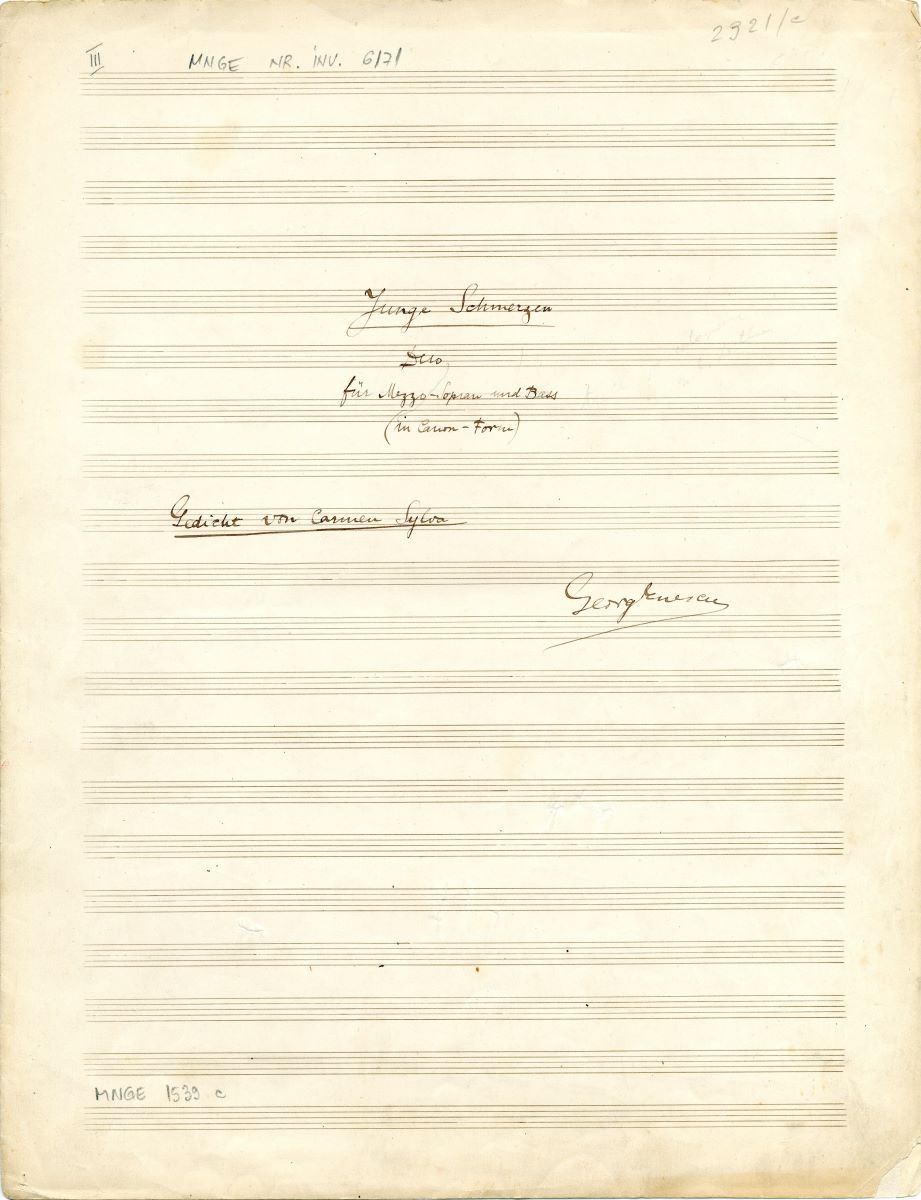 2921/c
III MNGE NR. INV. 6/7/
Junge Schmerzen
Duo
für Mezzo-Sopran und Bass
(in Canon-Form)
Gedicht von Carmen Sylva
Georg Enescu
MNGE 1539 c